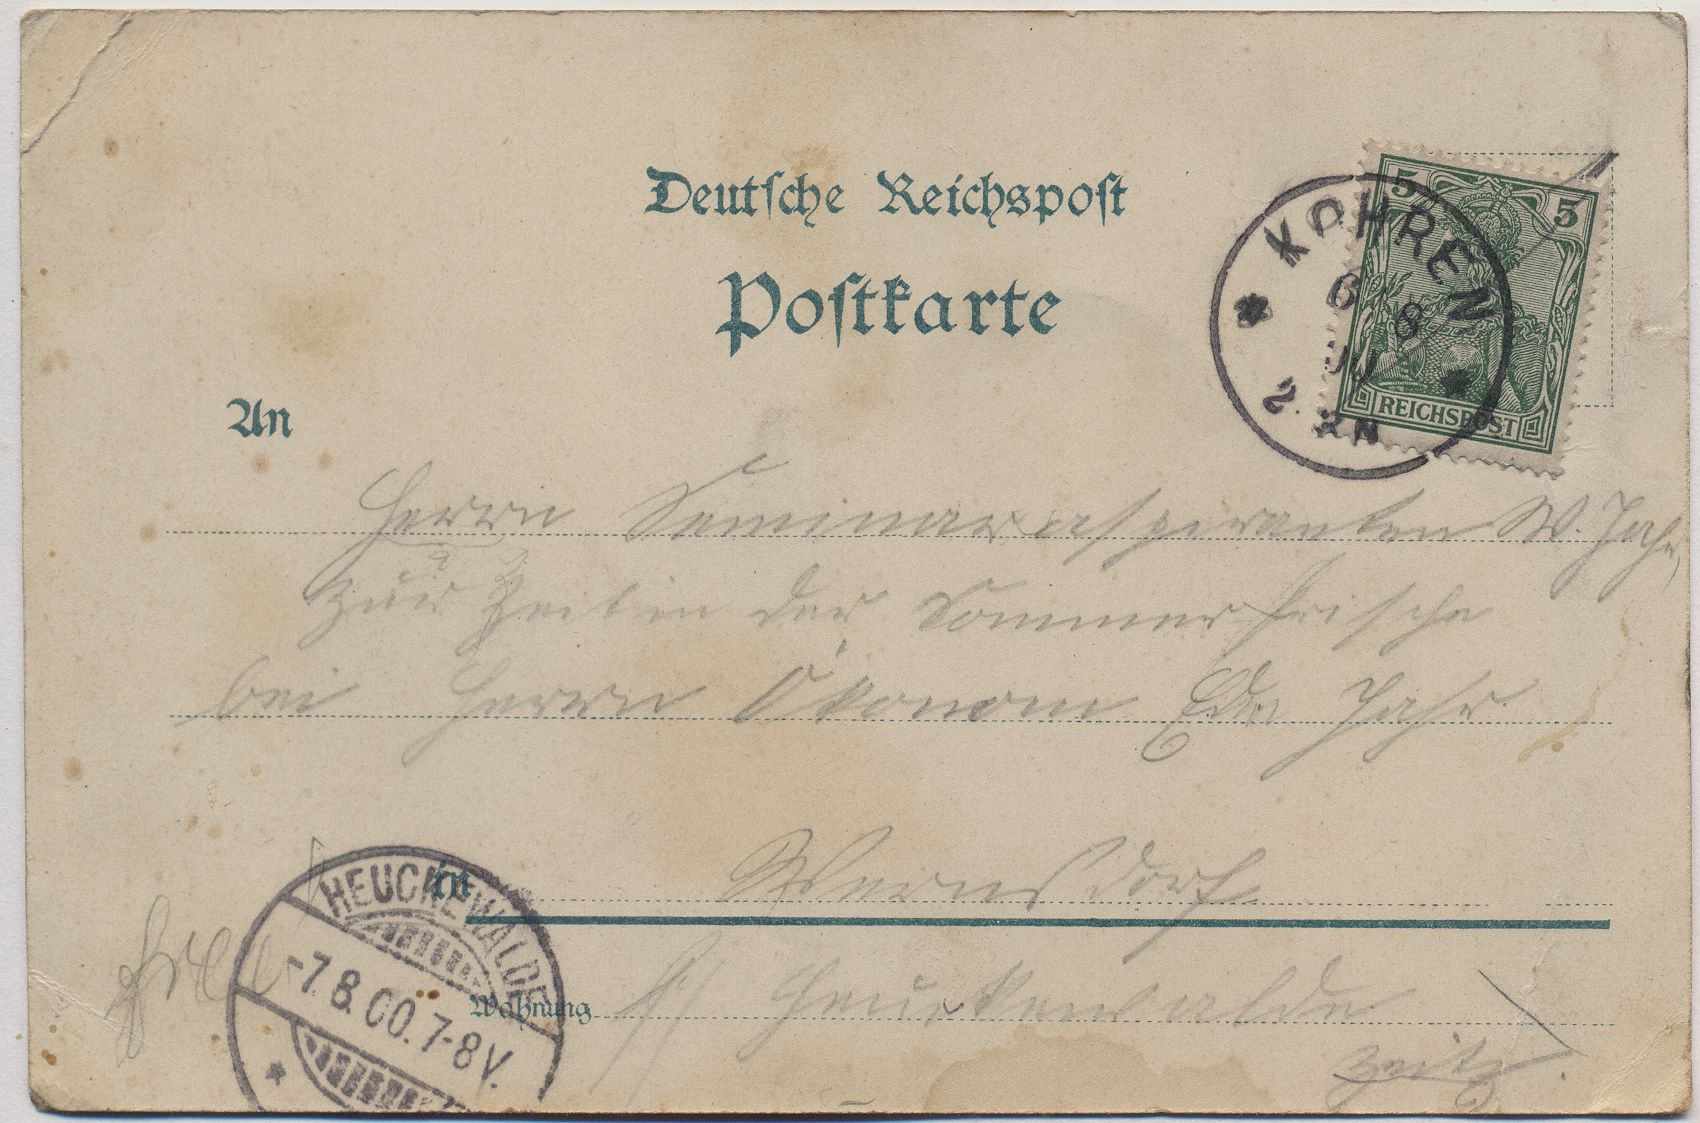 Deutsche Reichspost
Postkarte
KOHREN
6 8
00
2. 3 N
5 5
REICHSPOST
An
Herrn Seminaraspiranten W. Jahr,
zur Zeit in der Sommerfrische
bei Herrn Ökonom Jahr
in Wernsdorf
HEUCKEWALDE
-7.8.00.7-8V.
Wohnung Heuckenwalde
Zeitz.